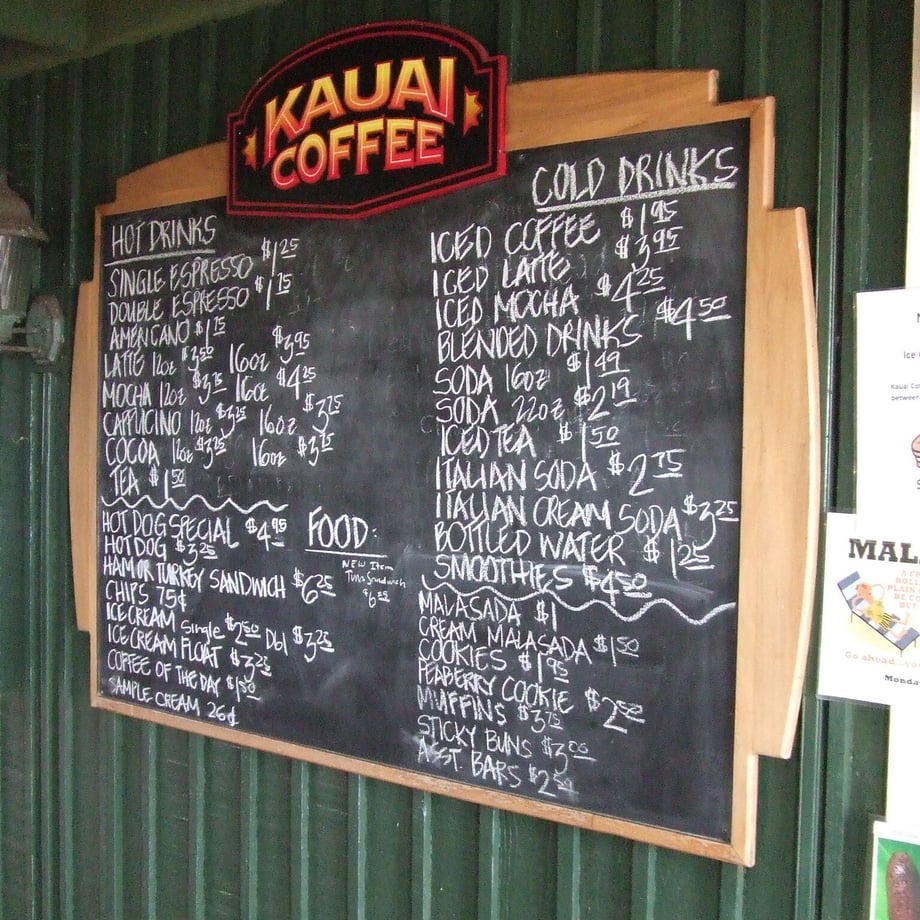 KAUAI
COFFEE
HOT DRINKS
SINGLE ESPRESSO $1.25
DOUBLE ESPRESSO $1.75
AMERICANO $1.75
LATTE 12oz $3.50 16oz $3.95
MOCHA 12oz $3.75 16oz $4.25
CAPPUCINO 12oz $3.25 16oz $3.75
COCOA 12oz $3.25 16oz $3.75
TEA $1.50
FOOD:
NEW Item
Tuna Sandwich
HOT DOG SPECIAL $4.95
HOT DOG $3.25
HAM OR TURKEY SANDWICH $6.25
CHIPS 75¢
ICE CREAM Single $2.50 Dbl $3.25
ICE CREAM FLOAT $3.25
COFFEE OF THE DAY $1.50
SAMPLE CREAM 26¢
COLD DRINKS
ICED COFFEE $1.95
ICED LATTE $3.95
ICED MOCHA $4.25
BLENDED DRINKS $4.50
SODA 16oz $1.49
SODA 22oz $2.19
ICED TEA $1.50
ITALIAN SODA $2.75
ITALIAN CREAM SODA $3.25
BOTTLED WATER $1.25
SMOOTHIES $4.50
MALASADA $1
CREAM MALASADA $1.50
COOKIES $1.95
PEABERRY COOKIE $2.50
MUFFINS $3.75
STICKY BUNS $3.00
ASST. BARS $2.50
Ice
Kauai Co
between
MAL
ROLL
PLAIN
BE CO
BU
Go ahead...yo
Monda